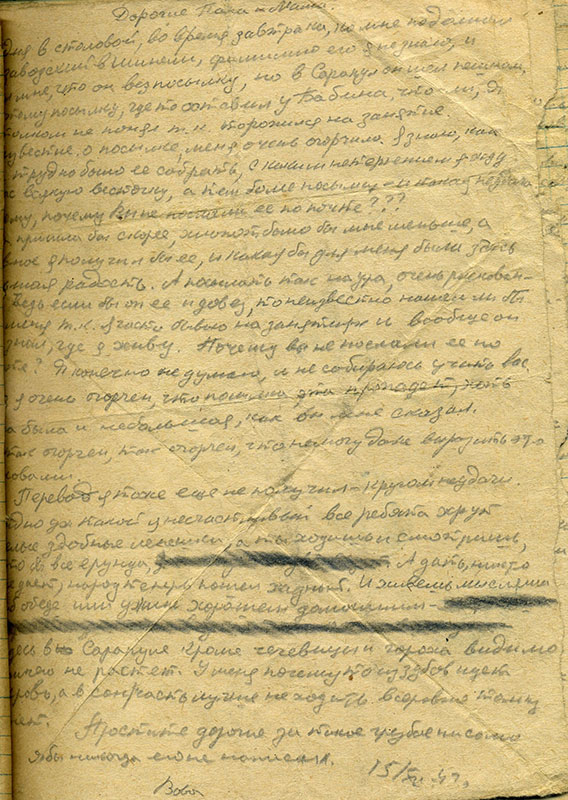 Дорогие Папа и Мама.
дня в столовой, во время завтрака, ко мне подошел
заводский в шинели, фамилию его я не знаю, и
мне, что он вез посылку, но в Сарапул он шел пешком,
эту посылку, где то оставил у Бабина что-ли, я
толком не понял т.к. торопился на занятие.
известие о посылке, меня очень огорчило. Я знаю, как
трудно было ее собрать, с каким нетерпением я жду
всякую весточку, а тем более посылку и какая неудача
му, почему Вы не послали ее по почте???
пришла бы скорее, хлопот было бы мне меньше, а
я получил бы ее, и какая бы для меня была здесь
радость. А посылать так наура, очень рискован-
Ведь если бы он ее и довез, то неизвестно нашел ли бы
меня т.к. я часто бываю на занятиях и вообще он
знал, где я живу. Почему вы не послали ее по
те? Я конечно не думаю, и не собираюсь учить вас
я очень огорчен, что посылка эта пропадет, хоть
была и небольшая, как он мне сказал.
так огорчен, так огорчен, что не могу даже выразить это
словами.
Перевод я тоже еще не получил - кругом неудачи.
да какой я несчастливый все ребята жрут
сдобные а ты ходишь и смотришь,
то бы все ерунда, А дать, никто
не дает, народ теперь пошел жадный. И живешь мыслями
об обеде или ужине хорошем домашнем -
десь в Сарапуле кроме чечевицы и гороха видимо
ничего не растет. У меня почему то из зубов идет
кровь, а в санчасть лучше не ходить все равно толку
нет.
Простите дорогие за такое грубое письмо
я бы никогда его не написал.
15/ 42 г.
Вова